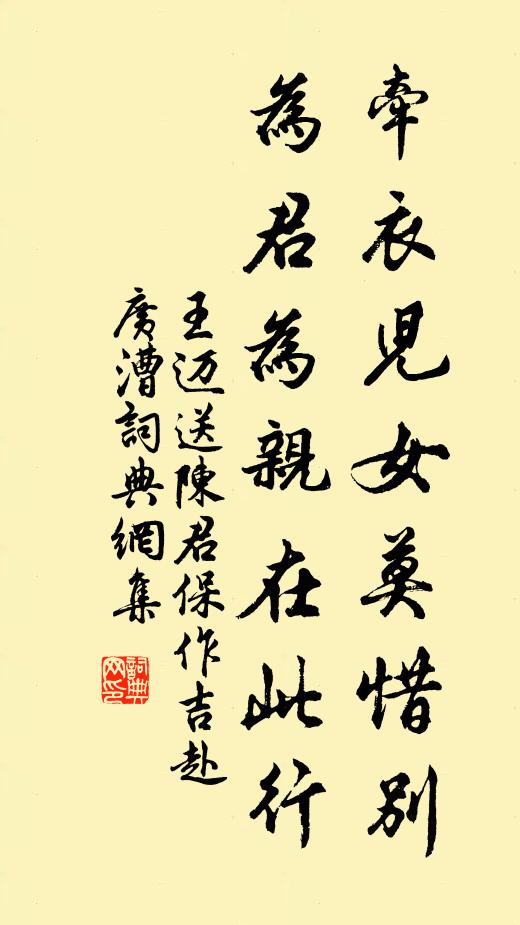 牽衣兒女莫惜別
為君為親在此行
王迈送陳君保作吉赴
廣漕詞典網集
詞典
网印